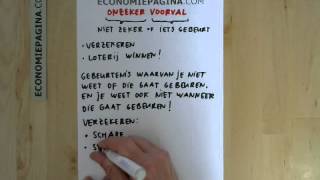 ECONOMIEPAGINA.COM
ONZEKER VOORVAL
NIET ZEKER OF IETS GEBEURT
• VERZEKEREN
• LOTERIJ WINNEN!
GEBEURTENIS WAARVAN JE NIET
WEET OF DIE GAAT GEBEUREN.
EN JE WEET OOK NIET WANNEER
DIE GAAT GEBEUREN!
VERZEKEREN:
• SCHADE
ECONOMIEPAGINA.COM